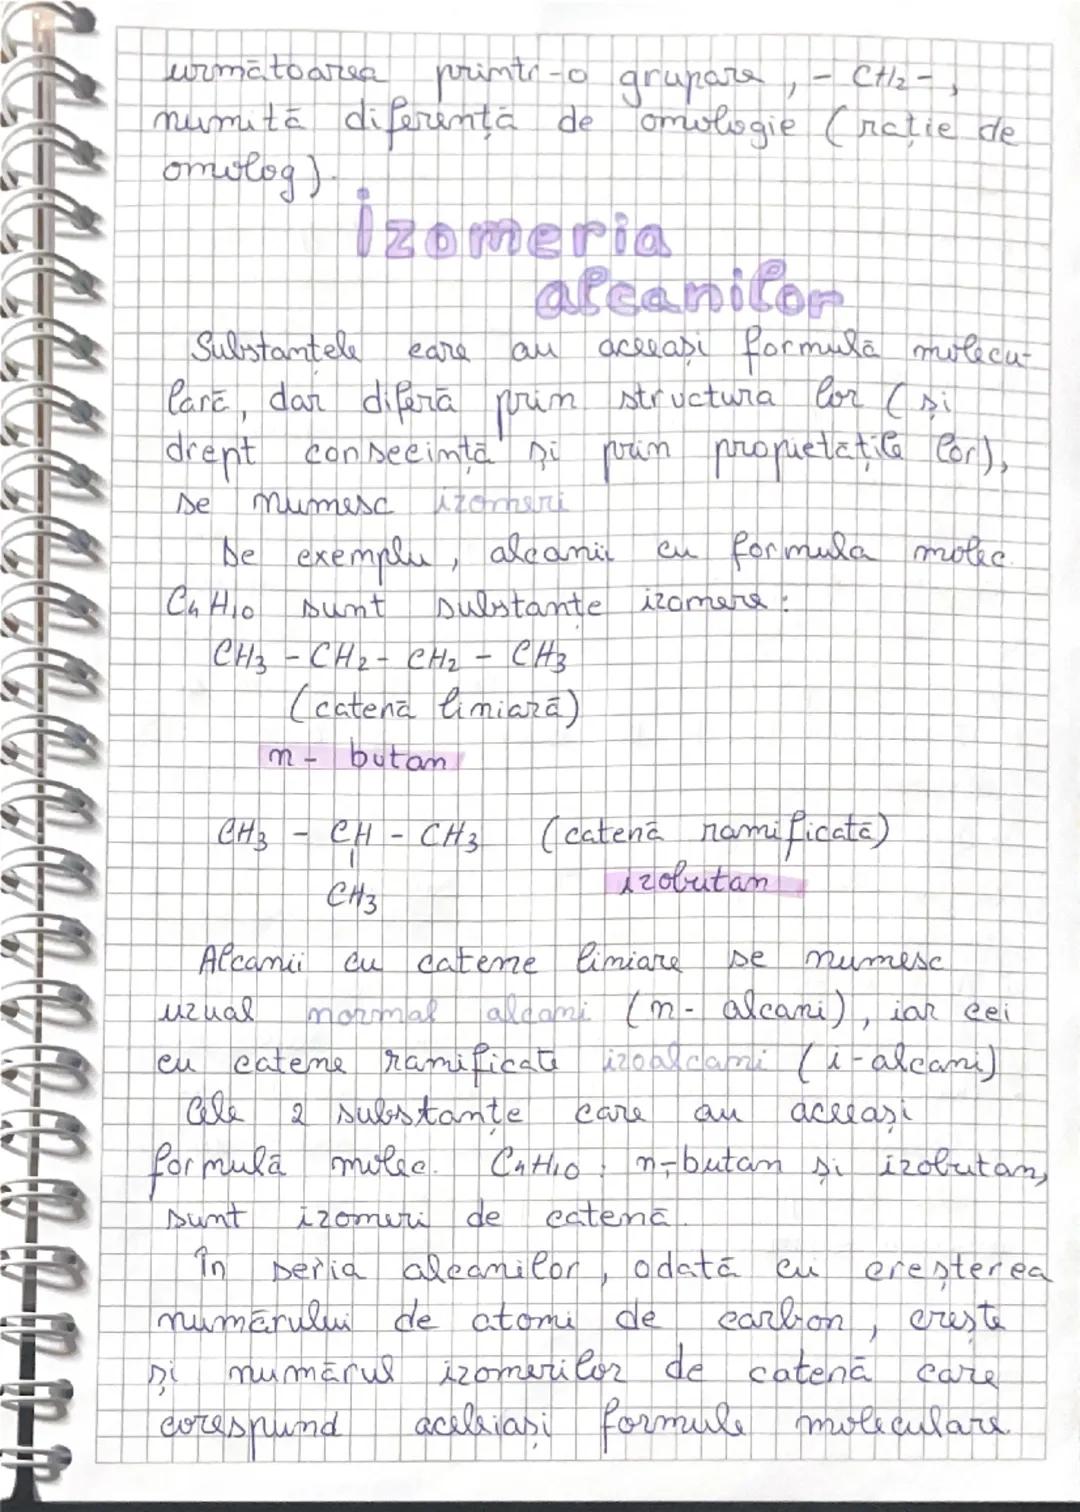 următoarea printr-o grupare, - CH2 -,
numită diferență de omologie (rație de
omolog).
Izomeria
alcanilor
Substanțele care au aceeași formulă molecu-
lară, dar diferă prin structura lor (și
drept consecință și prin proprietățile lor),
se numesc izomeri
De exemplu, alcanii cu formula molec.
C4H10 sunt substanțe izomere:
CH3 - CH2 - CH2 - CH3
(catenă liniară)
n - butan
CH3 - CH - CH3 (catenă ramificată)
|
CH3 izobutan
Alcanii cu catene liniare se numesc
uzual normal alcani (n- alcani), iar cei
cu catene ramificate izoalcani (i-alcani)
Cele 2 substanțe care au aceeași
formulă molec. C4H10: n-butan și izobutan,
sunt izomeri de catenă.
În seria alcanilor, odată cu creșterea
numărului de atomi de carbon, crește
și numărul izomerilor de catenă care
corespund aceleiași formule moleculare.